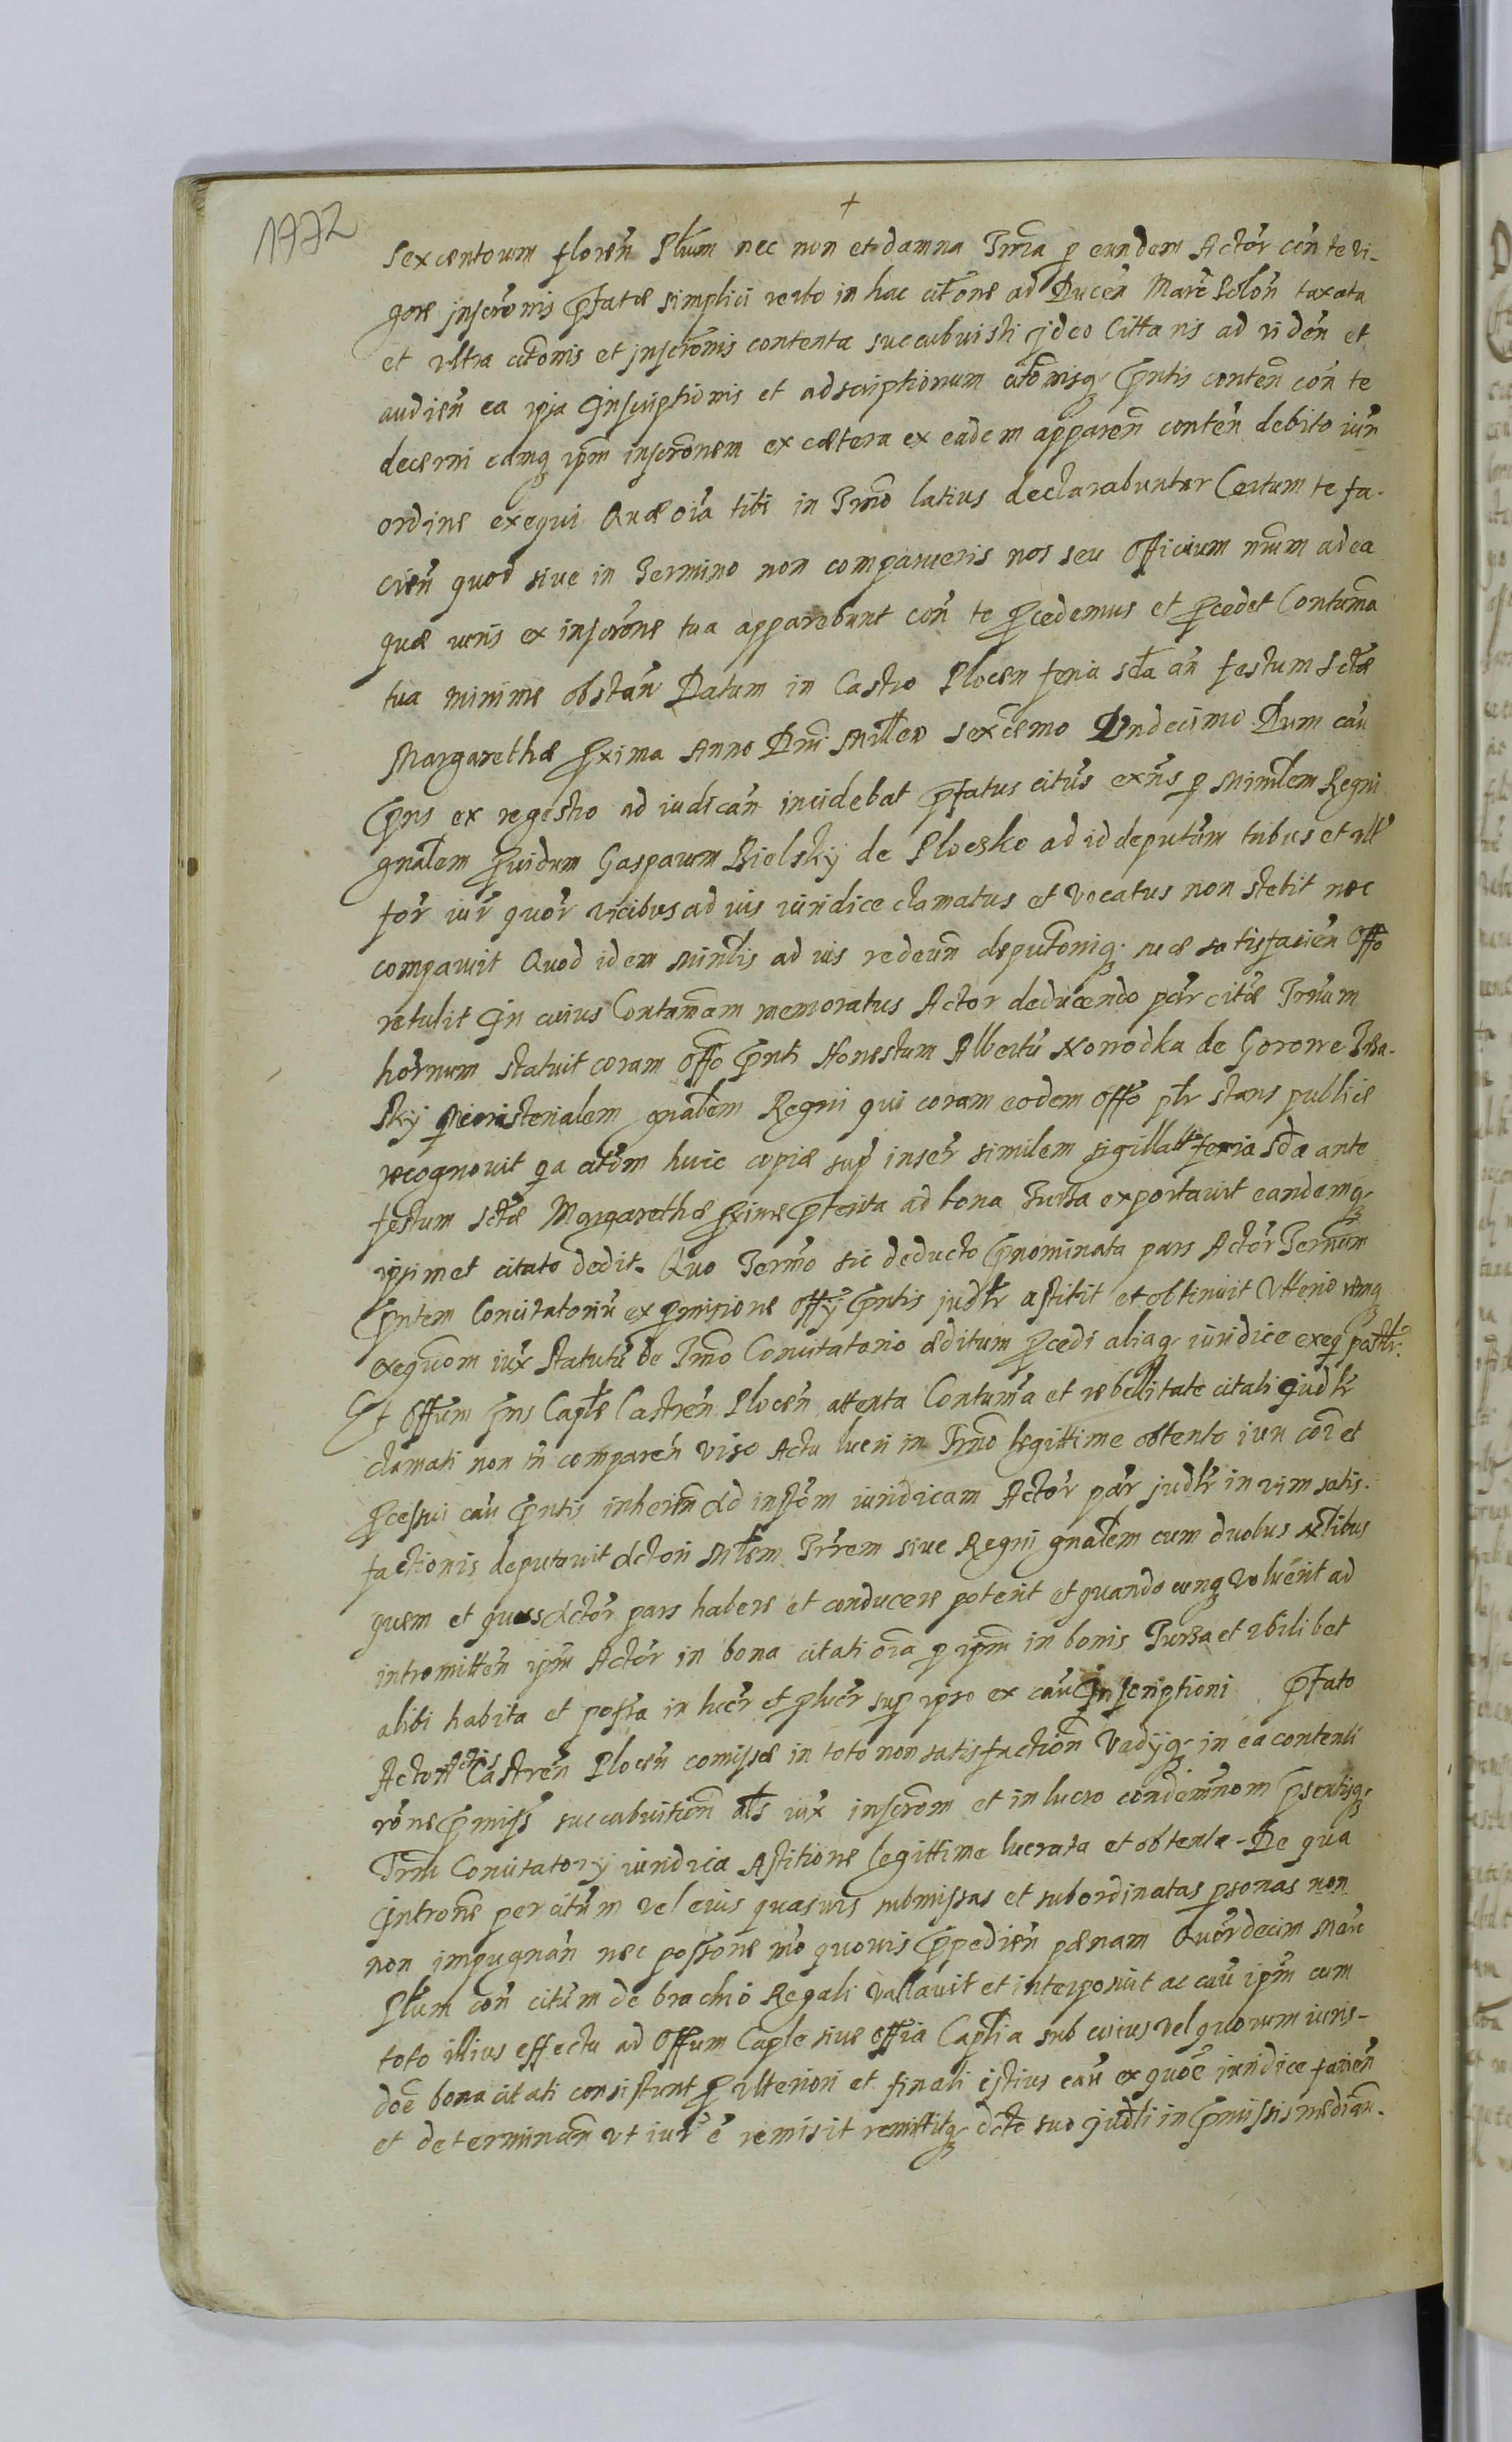 1772
+
Sexcentorum floren̄ Plūm nec non et damna Trrā p eundem Actōr con̄ te vi-
gore inscrōnis p̄fatæ simplici verbo in hac citōne ad Ducēn Marc̄ Polōn taxata
et vltra citōnis et inscrōnis contenta succubuisti jdeo Cittaris ad viden̄ et
audien̄ ea ipsa Inscriptionis et adscriptionum citōnisq̨ p̄ntis conten̄ con̄ te
decerni eamq̨ ipm̄ inscrōnem ex cætera ex eadem apparen̄ conten̄ debito iur̄
ordine exequi Quæ oīa tibi in Trmō latius declarabuntur Certum te fa-
cien̄ quod siue in Termino non comparueris nos seu Officium nr̄um ad ea
quæ iuris ex inscrōne tua apparebunt con̄ te p̄cedemus et p̄cedet Contumā
tua minime obstan̄ Datum in Castro Plocen feria sd̄a an̄ festum Sctæ
Margarethæ p̄xima Anno Dn̄i Millēo sexcēmo Vndecimo Dum cau̅
p̄ns ex regestro ad iudican̄ incidebat p̄fatus citūs exn̄s p Ministlem Regni
gnālem p̄uidum Gasparum Bielsky de Plocsko ad id deputūm tribus et vll̄
for̄ iur̄ quōr vicibus ad iūs iuridice clamatus et vocatus non stetit nec
comparuit Quod idem Ministlis ad iūs redeun̄ deputōniq̨ suæ satisfacien̄ Offō
retulit In cuius Contumāam memoratus Actor deducendo par citæ Trn̄um
hoōrnum statuit coram Offō p̄nti Honestum Albertū Nowodka de Gorowe
sky Ministerialem gnālem Regni qui coram eodem Offō pl̄r stans publice
recognouit qa citōm huic copiæ sup̄ inser̄ similem sigillatt feria Sd̄a ante
festum Sctæ Margarethæ p̄xime p̄terita ad bona Turza exportauit eandemq̨
ipsimet citato dedit. Quo Termō sic deducto p̄nominata pars Actōr Termīnum
p̄ntem Concitatoriū ex p̄misione Offy p̄ntis judlr̄ astitit et obtinuit Vlteriorēmq̨
exequōm iux̄ Statutū de Trmō Concitatorio æditum p̄cedi aliaq̨ iuridice exeq̨ postlr̄.
Et Offūm p̄ns Caplē Castren̄ Plocen̄ attenta Contumā et rebellitate citati judlr̄
clamati non tn̄ comparen̄ viso Actu lucri in Trmō legittime obtento iuri cōi et
p̄cessui cau̅ p̄ntis inheren̄ Ad instōm iuridicam Actōr pār judlr̄ in vim satis-
factionis deputauit Actori Ministlēm Trrēm siue Regni gnālem cum duobus nobilibus
quem et quos Actōr pars habere et conducere poterit et quando cunq̨ voluerit ad
intromitten̄ ipm̄ Actōr in bona citati oīa p ipm̄ in bonis Turza et vbilibet
alibi habita et possā in lucr̄ et p̄lucr̄ sup̄ ipso ex cau̅ Inscriptioni p̄fato
Actori Actis Castren̄ Plocen̄ comissæ in toto non satisfactiōn Vadyq̨ in ea contenti
rōne p̄miss̄ succubuitiōn al̄s iux̄ inscrōm et in lucro condemnōm p̄sentisq̨
Trmī Concitatory iuridica Astitione legittime lucrata et obtenta - De qua
Intrōne per citūm vel eius quasuis submissas et subordinatas p̄sonas non
non impugnan̄ nec possōne mō quouis p̄pedien̄ pænam Quōrdecim Mar̄
Plūm con̄ citūm de brachio Regali vallauit et interposuit ac cau̅ ipm̄ cum
toto illius effectu ad Offūm Caplē siue offia Captlia sub cuius vel quorum iuris-
dōē bona citati consistunt p̄ vlteriori et finali istius cau̅ exquōē iuridice facien̄
et determinan̄ vt iur̄ ē remisit remittitq̨ dctō suo judlī in p̄missis median̄.